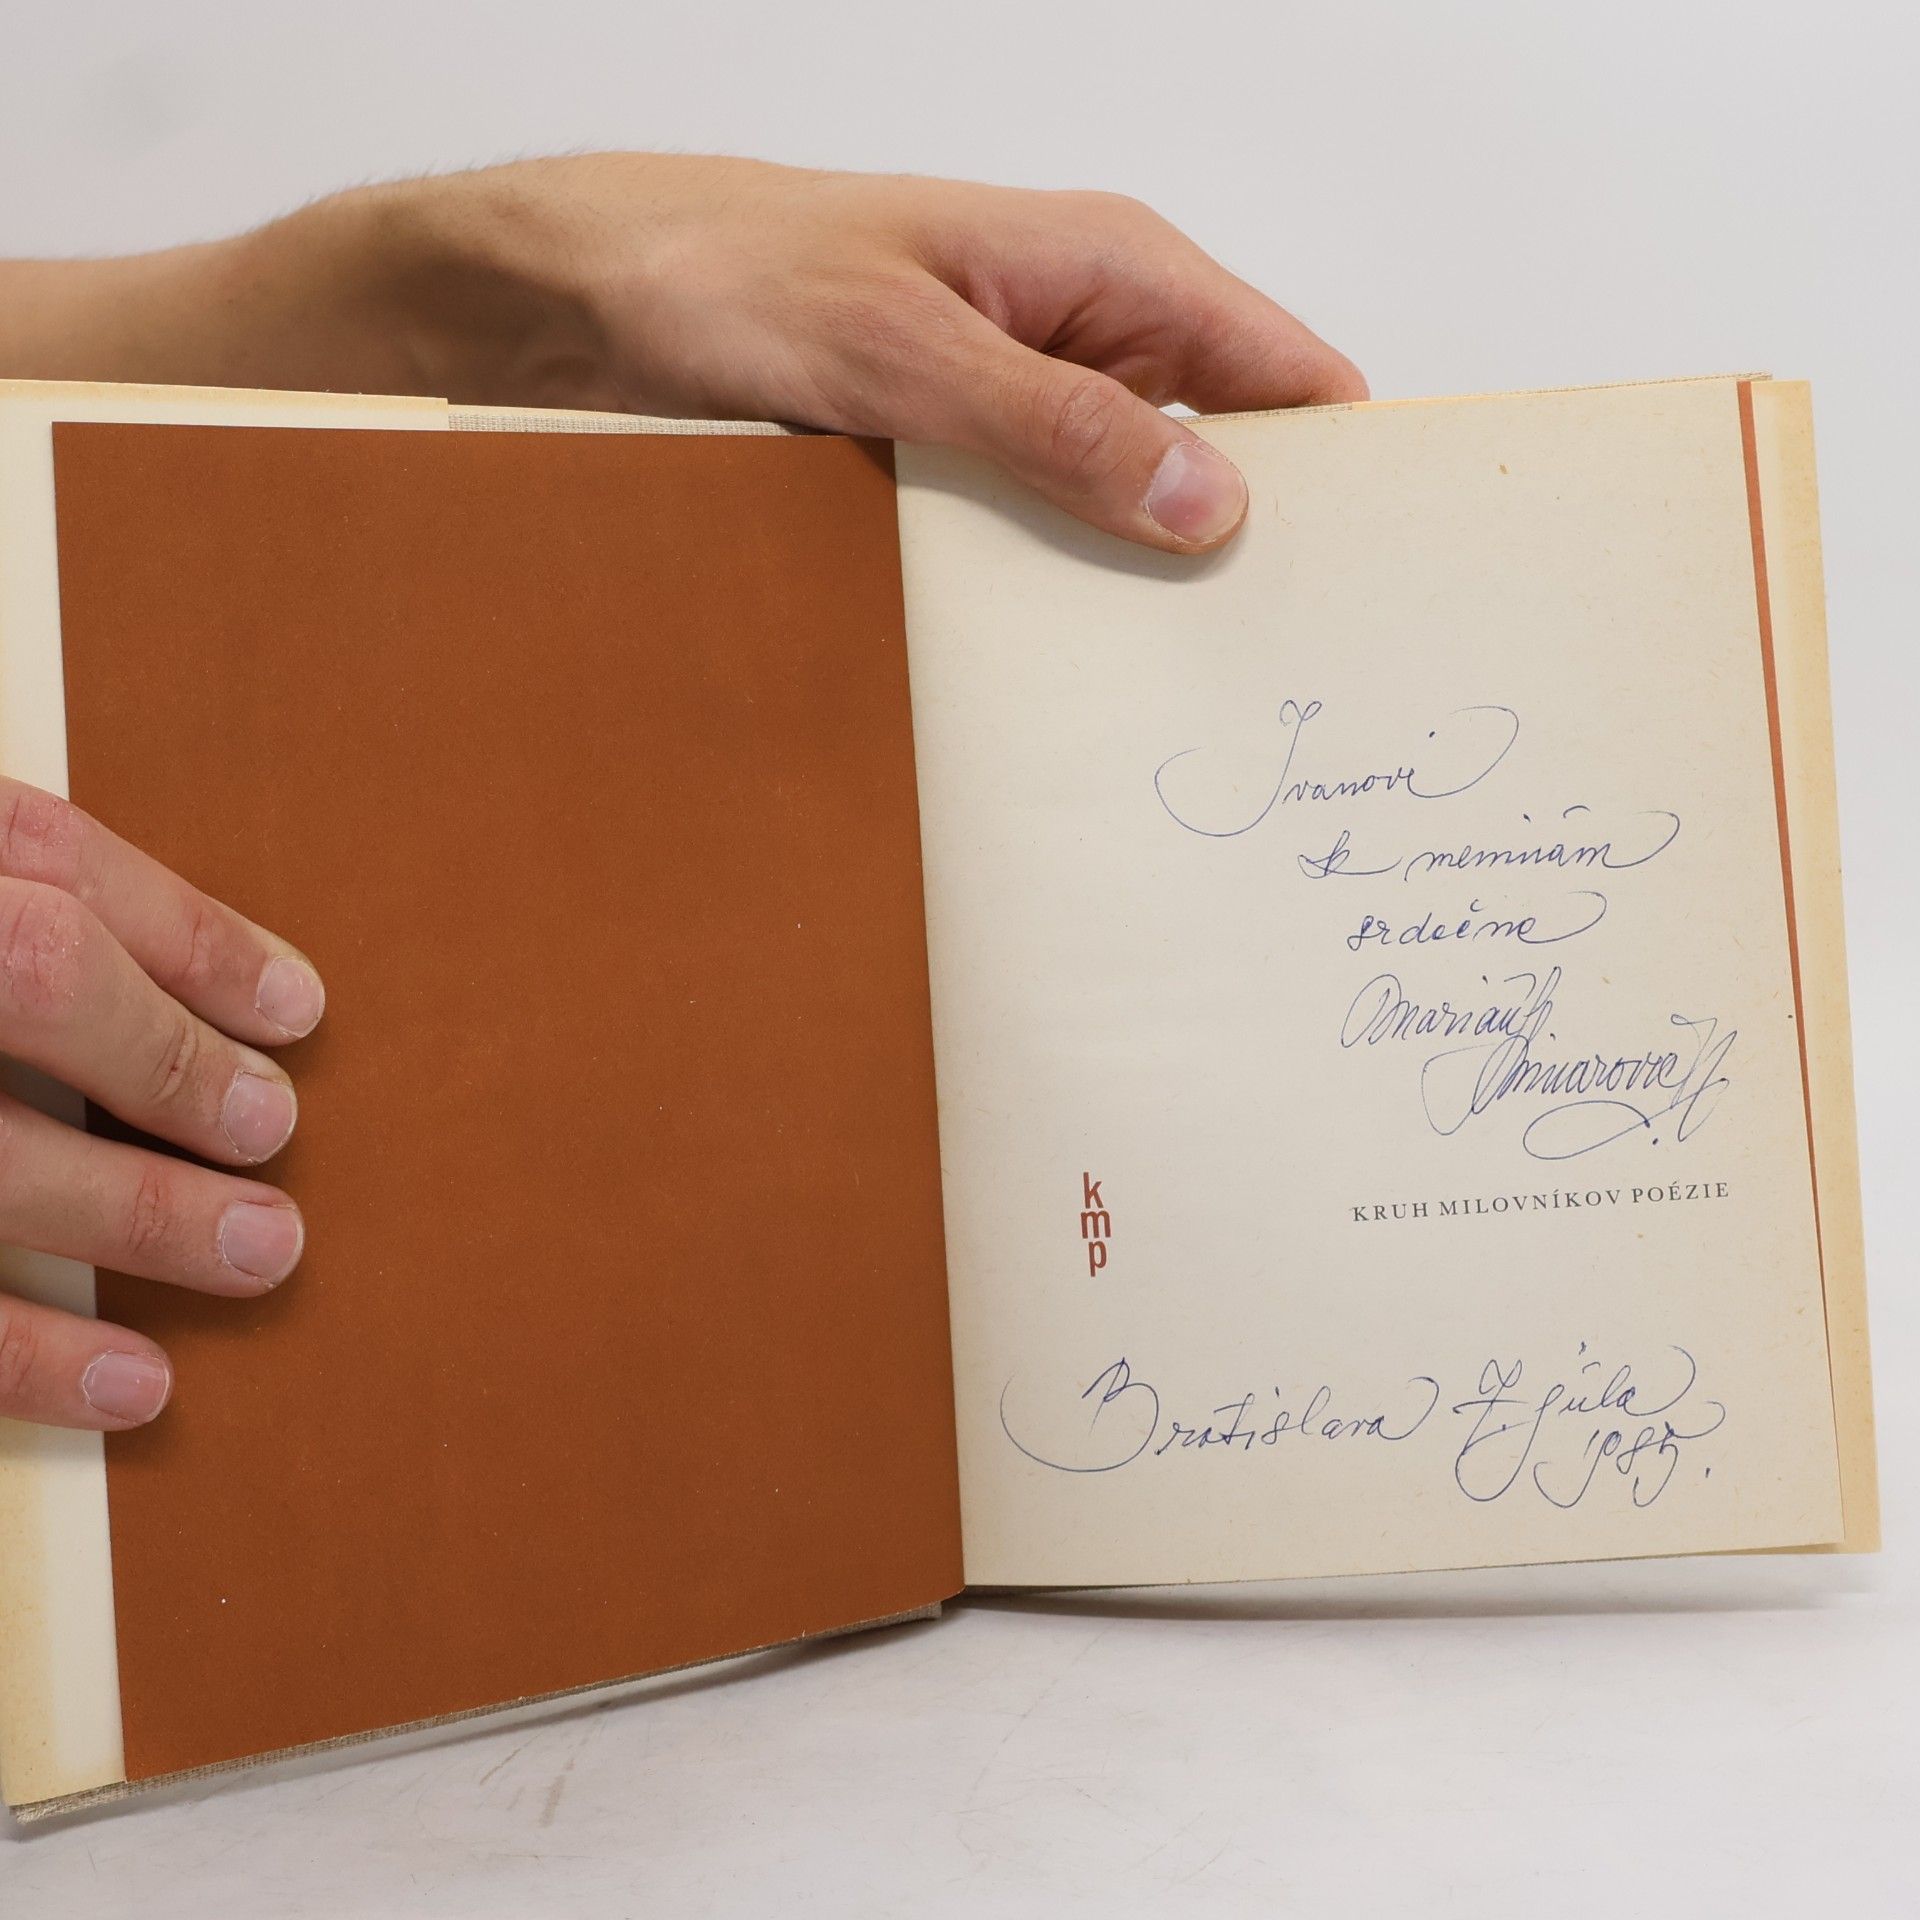 Ivanovi
k meninám
srdečne
Marián
kmp
KRUH MILOVNÍKOV POÉZIE
Bratislava 7. júla
1985.